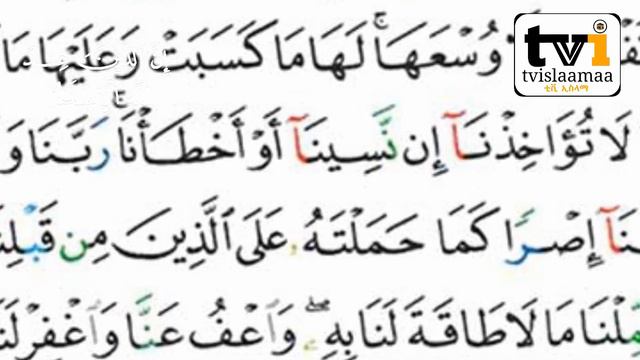 وُسْعَهَا ۚ لَهَا مَا كَسَبَتْ وَعَلَيْهَا مَا
لَا تُؤَاخِذْنَآ إِن نَّسِينَآ أَوْ أَخْطَأْنَا ۚ رَبَّنَا وَ
نَآ إِصْرًا كَمَا حَمَلْتَهُۥ عَلَى ٱلَّذِينَ مِن قَبْلِنَ
مِّلْنَا مَا لَا طَاقَةَ لَنَا بِهِۦ ۖ وَٱعْفُ عَنَّا وَٱغْفِرْ لَنَ
tvi
tvislaamaa
ቲቪ ኢስላማ